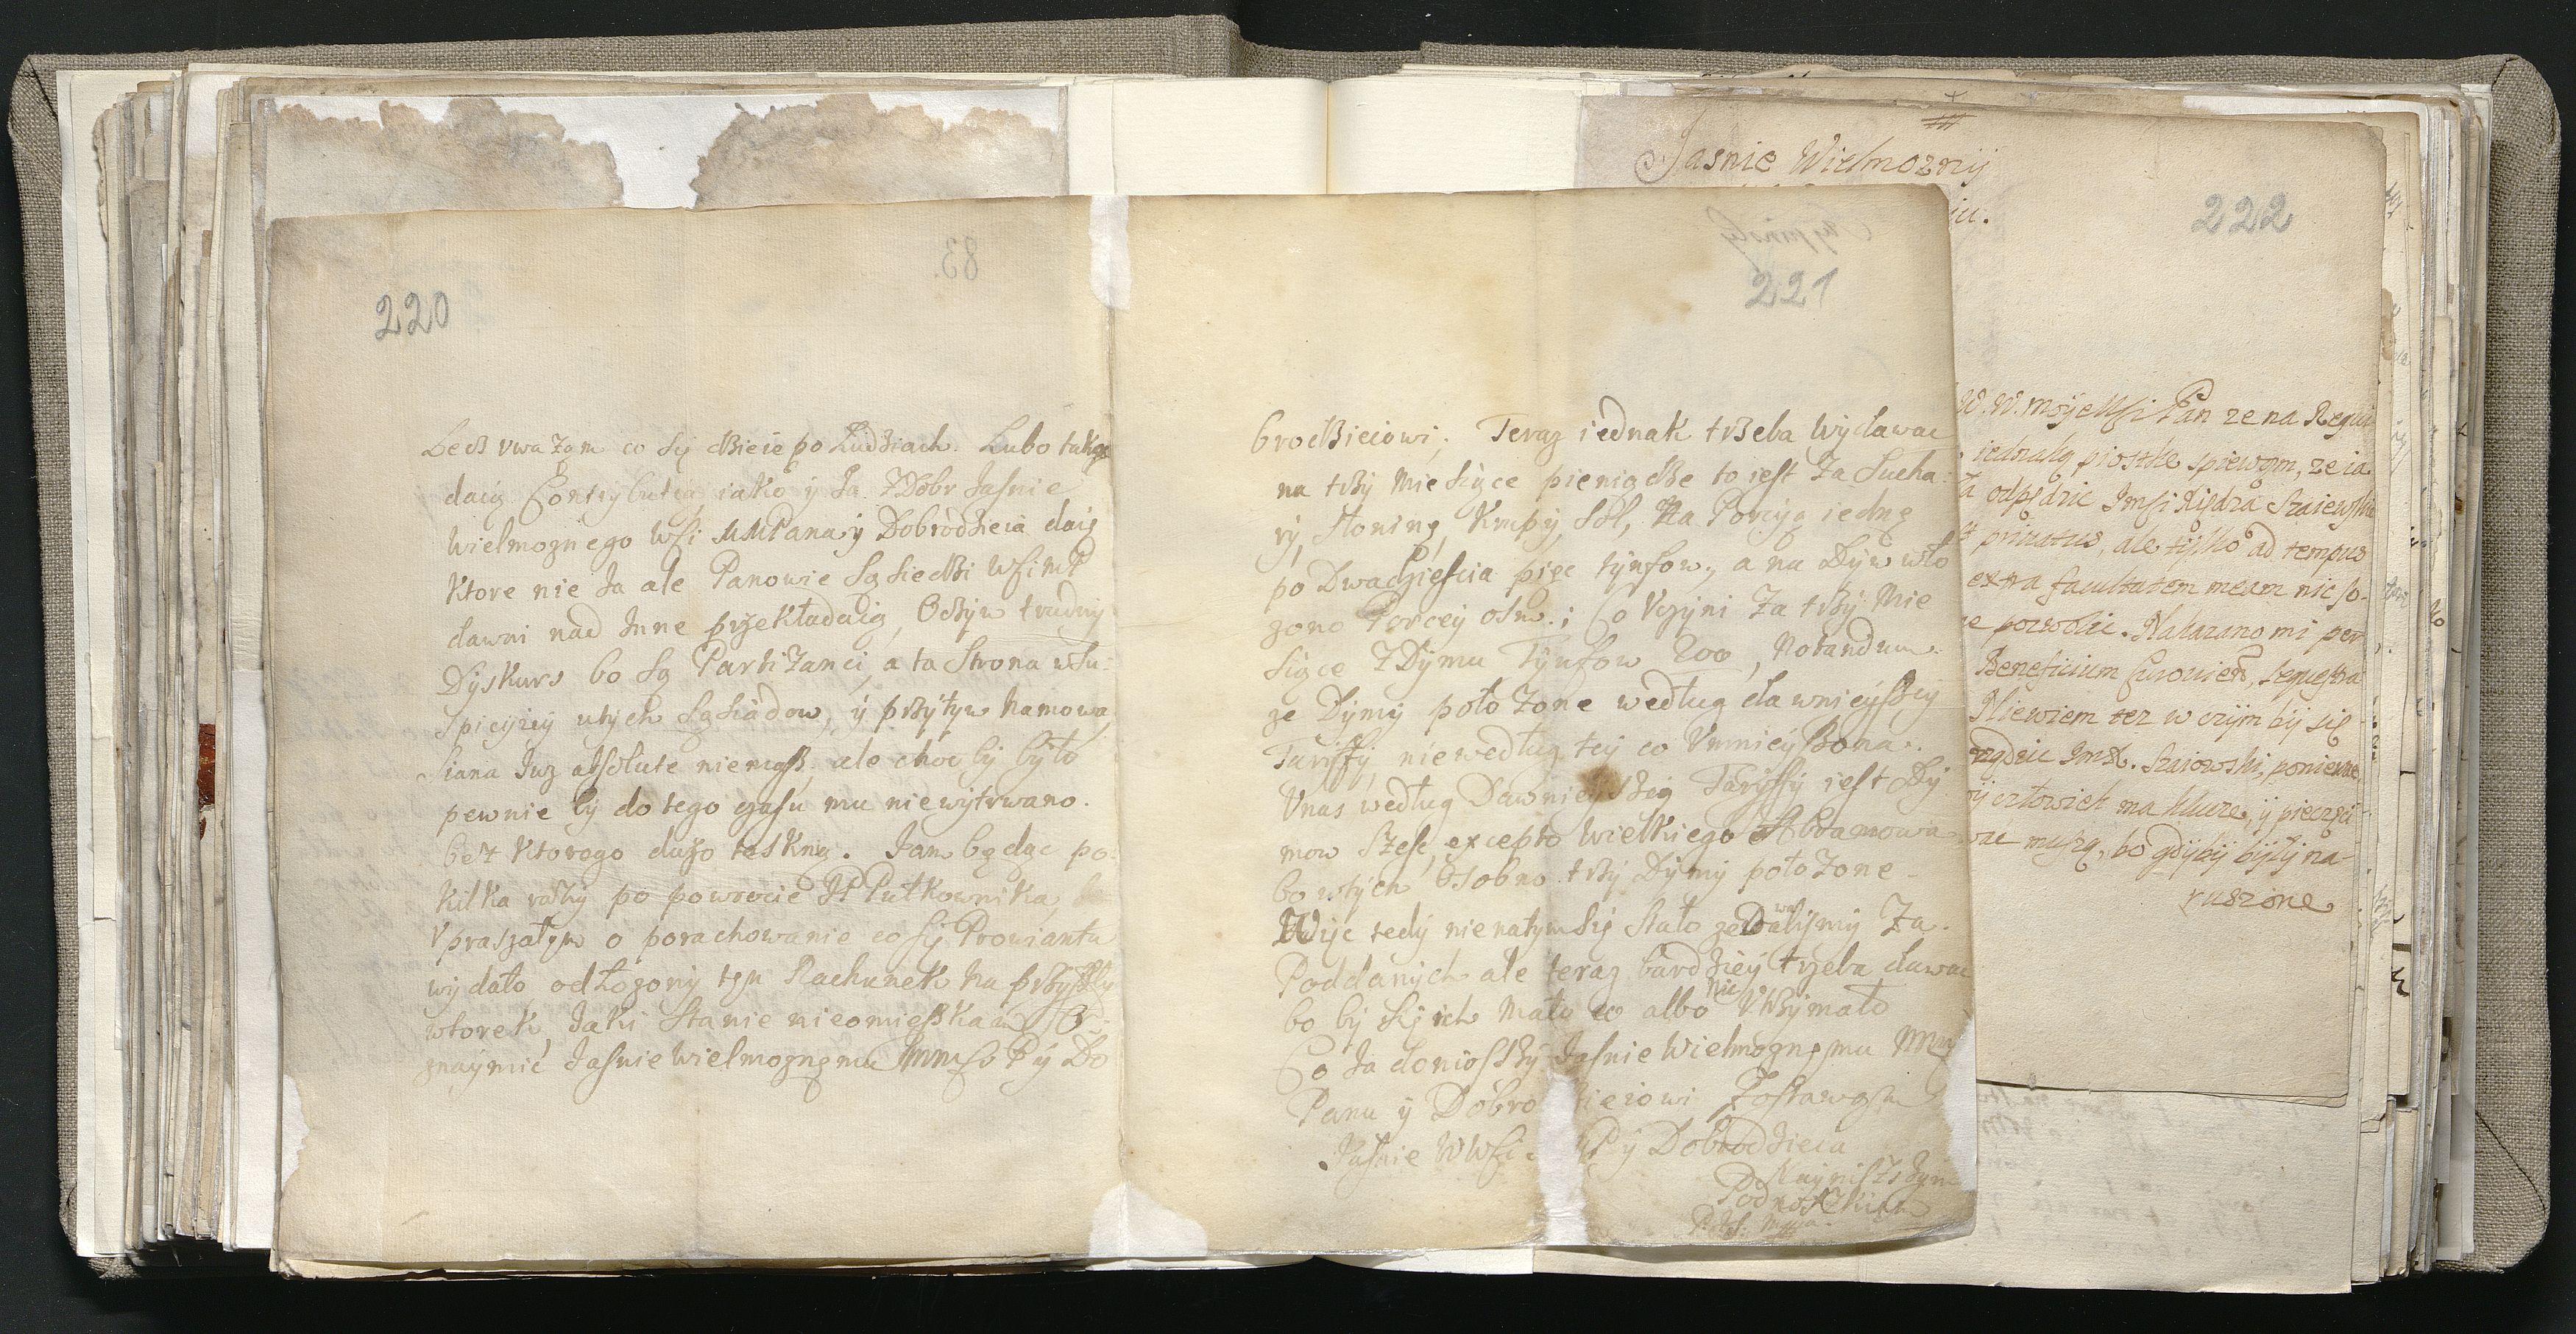 220
83.
Lecz vwazam co się dzieie po Ludziach. Lubo takze
daią Contrybutią iako y Ja Z Dobr Jasnie
Wielmoznego Wsi MMPana y Dobrodzieia daią
Ktore nie Ja ale Panowie Sąsiedzi WsiMP
dawni nad Inne przekładaią, Oczym trudny
Dyskurs bo są PartiZanci, a ta Strona wsu-
spicyiey utych Sąsiadow, y przytym Namowa
Siana Juz absolute niemasz, ale choc by było
pewnie by do tego czasu mu niewytrwano.
bez Ktorego duzo teskną. Jam będąc po-
kilka razy po powrocie JP Pułkownika,
Vpraszałem o porachowanie co się Prowiantu
wydało odłozony ten Rachunek na przyszły
wtorek, Jaki Stanie nieomieszkam O-
znaymić Jasnie Wielmoznemu P y Do
221
brodzieiowi; Teraz iednak trzeba Wydawac
na trzy Miesiące pieniądze to iest Za Sucha-
ry, słoninę, Krupy, Sol, Na Porcyą iedną
po Dwadziescia pięc tynfow, a na Dym wło
zono Porcey osm; Co Vczyni Za trzy Mie
siące Z Dymu Tynfow 200, Notandum
ze Dymy połoZone według dawnieyszey
Taryffy, niewedług tey co Vmnieyszona.
Vnas według Dawnieyszey Taryffy iest Dy
mow Szesc, excepto Wielkiego Abramowa
bo wtych Osobno trzy Dymy połoZone
Więc tedy nienatym Się Stało ze wali my Za
Poddanych ale teraz bardziey trzeba dawac
bo by się ich Mało co albo nic Vtrzymało
Co Ja doniosszy Jasnie Wielmoznemu
Panu y Dobro ieiowi Zostawam
Jasnie WWsi P y Dobrodzieia
Naynizszym
Podnozkiem
222
Jasnie Wielmozny
iu.
W. W. moy Msci Pan ze na Requi
iednakę piostke spiewam, ze ia
odpędzic Jmsi Xiędza Szaiewski
privatus, ale tylko ad tempus
extra facultatem meam nic so-
ie pozwolic. Nakazano mi per
Beneficium Curowien, sequestra
Niewiem tez w czym by się
Jmsx. Szaiowski, poniewa
człowiek ma klucze, y pieczęci
wac muszę, bo gdyby były na-
ruszone